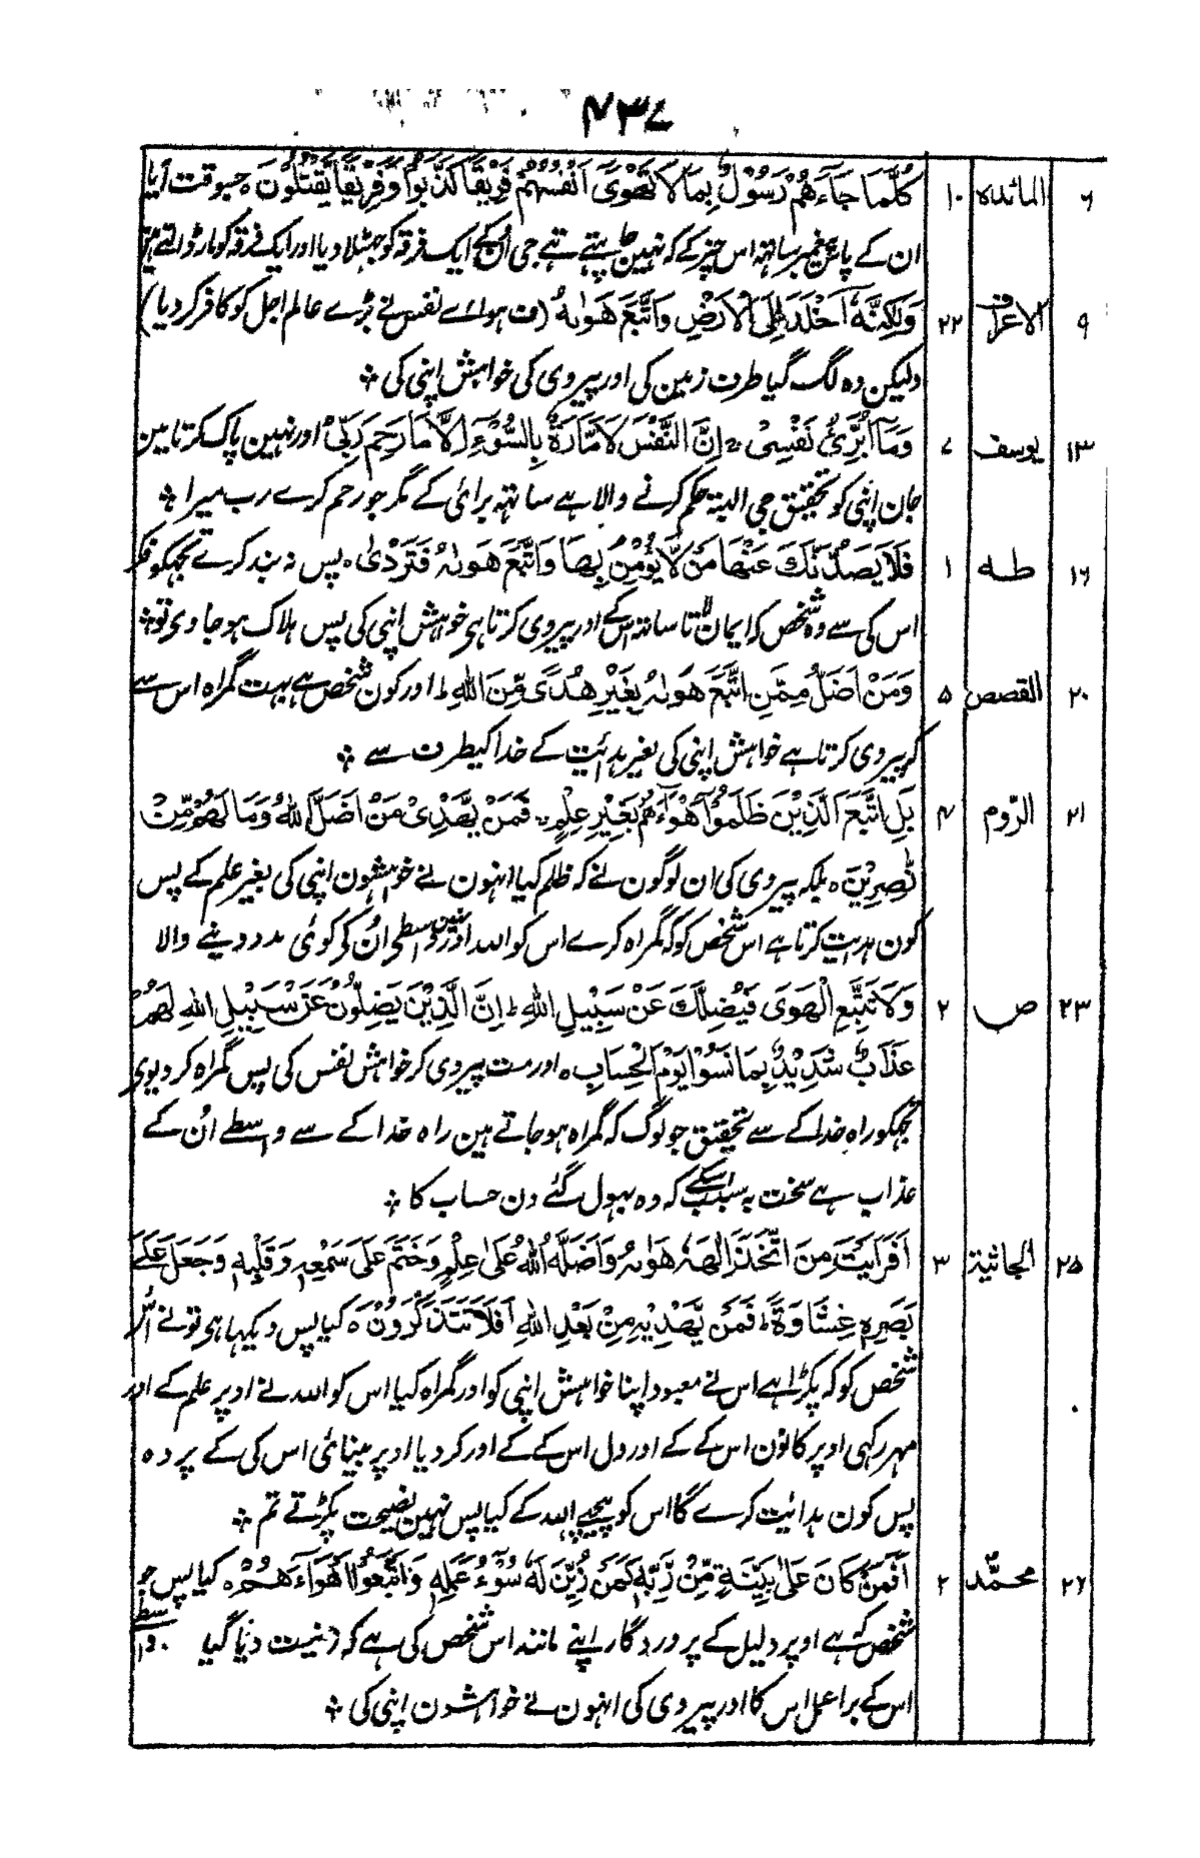 ۴۳۷
۶ المائدہ ۱۰ کُلَّمَا جَاءَهُمْ رَسُوْلٌ بِمَا لَا تَهْوٰۤى اَنْفُسُهُمْ فَرِیْقًا كَذَّبُوْا وَ فَرِیْقًا یَّقْتُلُوْنَ ہ جسوقت آیا
ان کے پاس پیغمبر ساتھ اس چیز کے کہ نہین چاہتے تہے جی ان کے ایک فرقہ کو جہٹلا دیا اور ایک فرقہ کو مار ڈالتے ہین
۹ الاعراف ۲۲ وَلٰكِنَّهٗ اَخْلَدَ اِلَى الْاَرْضِ وَاتَّبَعَ هَوٰىهُ (ف ہواے نفس نے بڑے عالم اجل کو کافر کر دیا)
ولیکن وہ لگ گیا طرف زمین کی اور پیروی کی خواہش اپنی کی ؞
۱۳ یوسف ۷ وَمَاۤ اُبَرِّئُ نَفْسِیْ ۚ اِنَّ النَّفْسَ لَاَمَّارَةٌۢ بِالسُّوْٓءِ اِلَّا مَا رَحِمَ رَبِّیْ اور نہین پاک کرتا مین
جان اپنی کو تحقیق جی البتہ حکم کرنے والا ہے ساتہہ برائی کے مگر جو رحم کرے رب میرا ؞
۱۶ طہ ۱ فَلَا یَصُدَّنَّكَ عَنْهَا مَنْ لَّا یُؤْمِنُ بِهَا وَاتَّبَعَ هَوٰىهُ فَتَرْدٰى ہ پس نہ بند کرے تجہکو فکر
اس کی سے وہ شخص کہ ایمان لاتا ساتہ اس کے اور پیروی کرتا ہی خواہش اپنی کی پس ہلاک ہو جاوی تو ؞
۲۰ القصص ۵ وَمَنْ اَضَلُّ مِمَّنِ اتَّبَعَ هَوٰىهُ بِغَیْرِ هُدًى مِّنَ اللّٰهِ ط اور کون شخص ہے بہت گمراہ اس سے
کہ پیروی کرتا ہے خواہش اپنی کی بغیر ہدائیت کے خدا کیطرف سے ؞
۲۱ الرّوم ۴ بَلِ اتَّبَعَ الَّذِیْنَ ظَلَمُوْۤا اَهْوَآءَهُمْ بِغَیْرِ عِلْمٍ ۚ فَمَنْ یَّهْدِیْ مَنْ اَضَلَّ اللّٰهُ وَمَا لَهُمْ مِّنْ
نّٰصِرِیْنَ ہ بلکہ پیروی کی ان لوگون نے کہ ظلم کیا انہون نے خواہشون اپنی کی بغیر علم کے پس
کون ہدایت کرتا ہے اس شخص کو کہ گمراہ کرے اس کو اللہ اور نہین واسطی اُن کے کوئی مدد دینے والا
۲۳ ص ۲ وَلَا تَتَّبِعِ الْهَوٰى فَیُضِلَّكَ عَنْ سَبِیْلِ اللّٰهِ ط اِنَّ الَّذِیْنَ یَضِلُّوْنَ عَنْ سَبِیْلِ اللّٰهِ لَهُمْ
عَذَابٌ شَدِیْدٌۢ بِمَا نَسُوْا یَوْمَ الْحِسَابِ ہ اور مت پیروی کر خواہش نفس کی پس گمراہ کر دیوی
تجہکو راہ خدا کے سے تحقیق جو لوگ کہ گمراہ ہو جاتے ہین راہ خدا کے سے واسطے اُن کے
عذاب ہے سخت بہ سبب اسکے کہ وہ بہول گئے دن حساب کا ؞
۲۵ الجاثیۃ ۳ اَفَرَاَیْتَ مَنِ اتَّخَذَ اِلٰهَهٗ هَوٰىهُ وَاَضَلَّهُ اللّٰهُ عَلٰى عِلْمٍ وَّخَتَمَ عَلٰى سَمْعِهٖ وَقَلْبِهٖ وَجَعَلَ عَلٰى
بَصَرِهٖ غِشٰوَةً ط فَمَنْ یَّهْدِیْهِ مِنْۢ بَعْدِ اللّٰهِ اَفَلَا تَتَذَكَّرُوْنَ ہ کیا پس دیکہا ہی تو نے اُس
شخص کو کہ پکڑا ہے اس نے معبود اپنا خواہش اپنی کو اور گمراہ کیا اس کو اللہ نے اوپر علم کے اور
مہر رکہی اوپر کانون اس کے کے اور دل اس کے کے اور کر دیا اوپر بینائی اس کی کے پردہ
پس کون ہدائیت کرے گا اس کو پیچہے اللہ کے کیا پس نہین نصیحت پکڑتے تم ؞
۲۶ محمّد ۲ اَفَمَنْ كَانَ عَلٰى بَیِّنَةٍ مِّنْ رَّبِّهٖ كَمَنْ زُیِّنَ لَهٗ سُوْٓءُ عَمَلِهٖ وَاتَّبَعُوْۤا اَهْوَآءَهُمْ ہ کیا پس جو
شخص کہ ہے اوپر دلیل کے پروردگار اپنے مانند اس شخص کی ہے کہ زینیت دیا گیا واسطے
اس کے برا عمل اس کا اور پیروی کی انہون نے خواہشون اپنی کی ؞